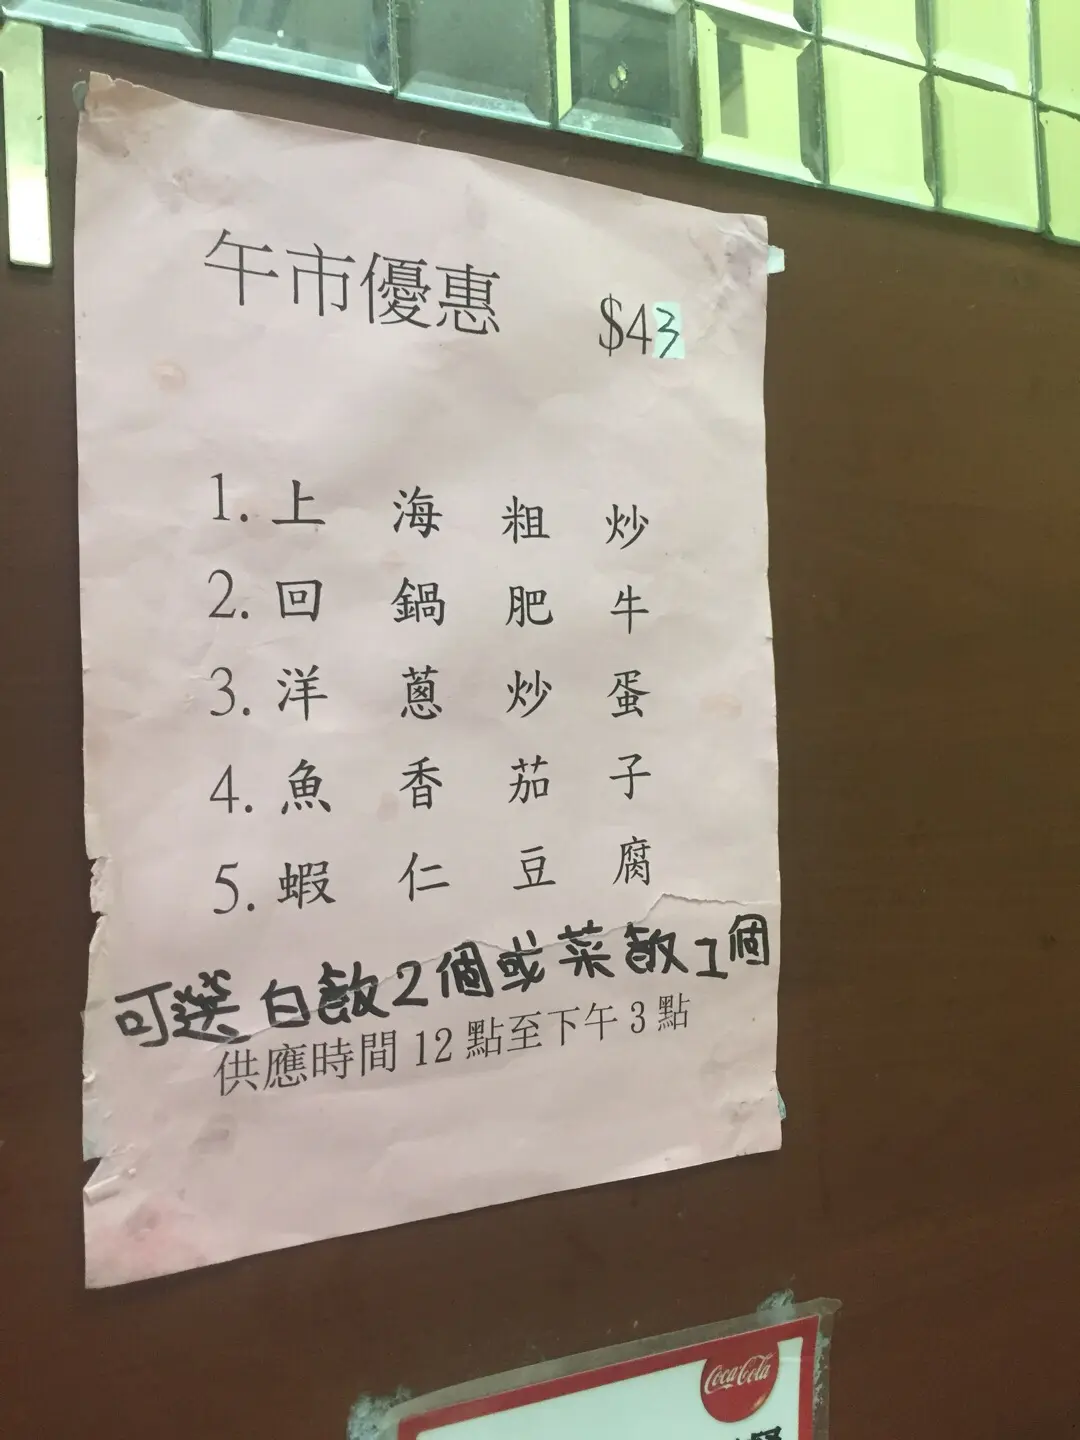 午市優惠 $43
1. 上海粗炒
2. 回鍋肥牛
3. 洋蔥炒蛋
4. 魚香茄子
5. 蝦仁豆腐
可選白飯2個或菜飯1個
供應時間 12 點至下午 3 點
Coca-Cola